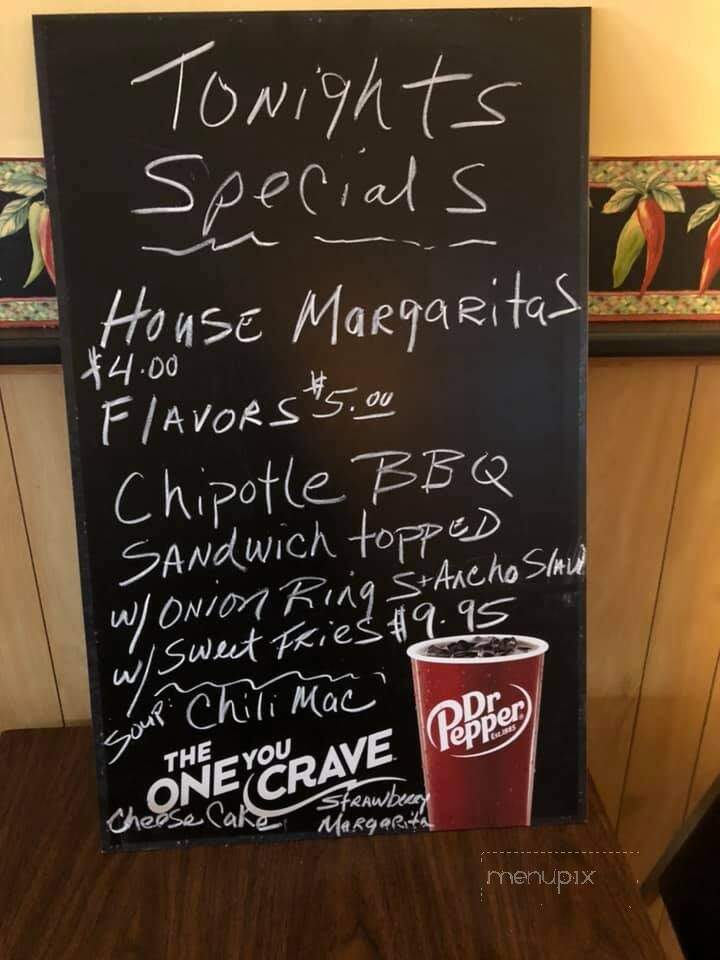 Tonights
Specials
House Margaritas
$4.00
Flavors $5.00
Chipotle BBQ
Sandwich topped
w/ Onion Rings + Ancho Slaw
w/ Sweet Fries $9.95
Soup: Chili Mac
THE
ONE YOU
CRAVE
Dr
Pepper
EST. 1885
Cheese Cake
Strawberry
Margarita
menupix